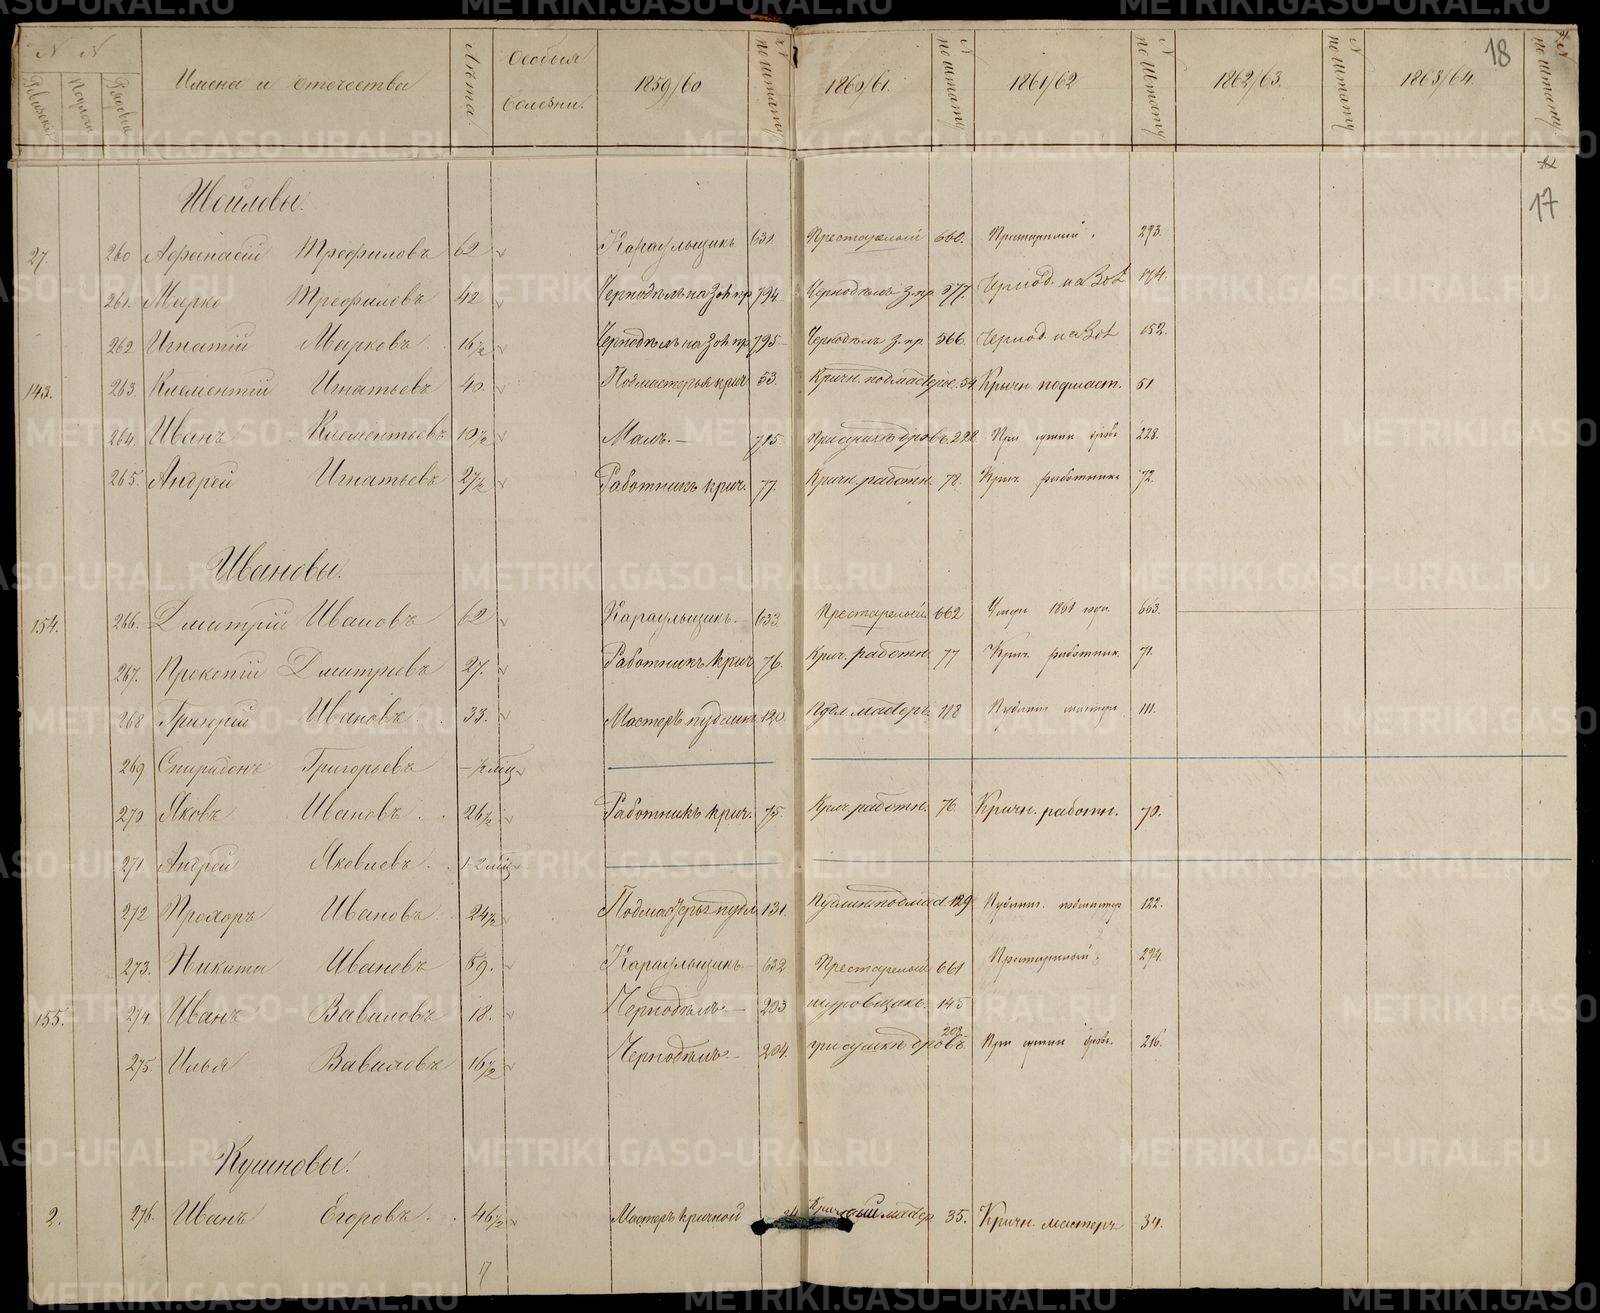 N N Имена и отечества Лѣта. Особыя болезни. 1859/60 N по штату 1860/61. N по штату 1861/62 N по штату 1862/63. N по штату 1863/64. 18 N по штату
Ревизск. Родовые
17
Шеиловы.
27. 260 Афанасий Трефиловъ 62 Караульщикъ 631. Престарелый 660. Престарелый. 293.
261. Марко Трефиловъ 42 794 Чернодѣлъ з. пр 577. Чернод. на
262 Игнатий Марковъ 16 1/2 795 Чернодѣлъ з. пр 566 Чернод. на 152.
143. 263. Клементий Игнатьевъ 40. Подмастерья крич 53. Кричн. подмастерье. 54. Кричн. подмаст. 51.
264. Иванъ Клементьевъ 10 1/2 Малъ. 795. При сушкѣ дровъ 228. При сушки дровъ 228.
265. Андрей Игнатьевъ 27 1/2 Работникъ крич. 77. Кричн. работн. 78. Крич. работникъ 72.
Ивановы.
154. 266. Дмитрий Ивановъ 62 Караульщикъ. 633. Престарелый 662 Умеръ 1861 года. 663.
267. Прокопий Дмитриевъ 27. Работникъ крич 76. Крич. работн. 77 Крич. работник. 71.
268 Григорий Ивановъ. 33. Мастеръ пудлинг 120. Пудл. мастеръ. 118 Пудлинг. мастеръ 111.
269 Спиридонъ Григорьевъ 1/2 мѣс
270 Яковъ Ивановъ. 26 1/2 Работникъ крич. 75. Крич. работн. 76 Кричн. работн. 70.
271. Андрей Яковлевъ. 1-2 мѣс
272 Прохоръ Ивановъ. 24 1/2 Подмастерье пудл 131. Пудлинг. подмаст 129 Пудлинг. подмастер 122.
273. Никита Ивановъ 59. Караульщикъ 632 Престарелый 661 Престарелый. 294.
155. 274. Иванъ Вавиловъ 18. Чернодѣлъ. 203 шуровщикъ. 145
275. Илья Вавиловъ 16 1/2 Чернодѣлъ. 204. при сушкѣ дровъ 208 При сушки дровъ. 216.
Кушновы.
2. 276. Иванъ Егоровъ. 46 1/2 Мастеръ кричной Кричный мастер 35. Кричн. мастеръ 34.
7
METRIKI.GASO-URAL.RU